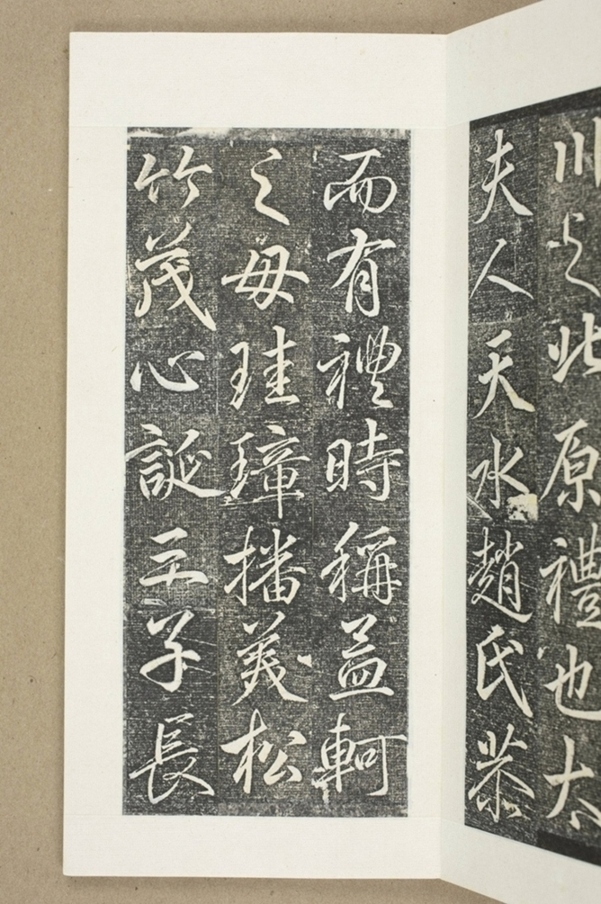 川之北原禮也太
夫人天水趙氏恭
而有禮時稱孟軻
之母珪璋播美松
竹茂心誕三子長